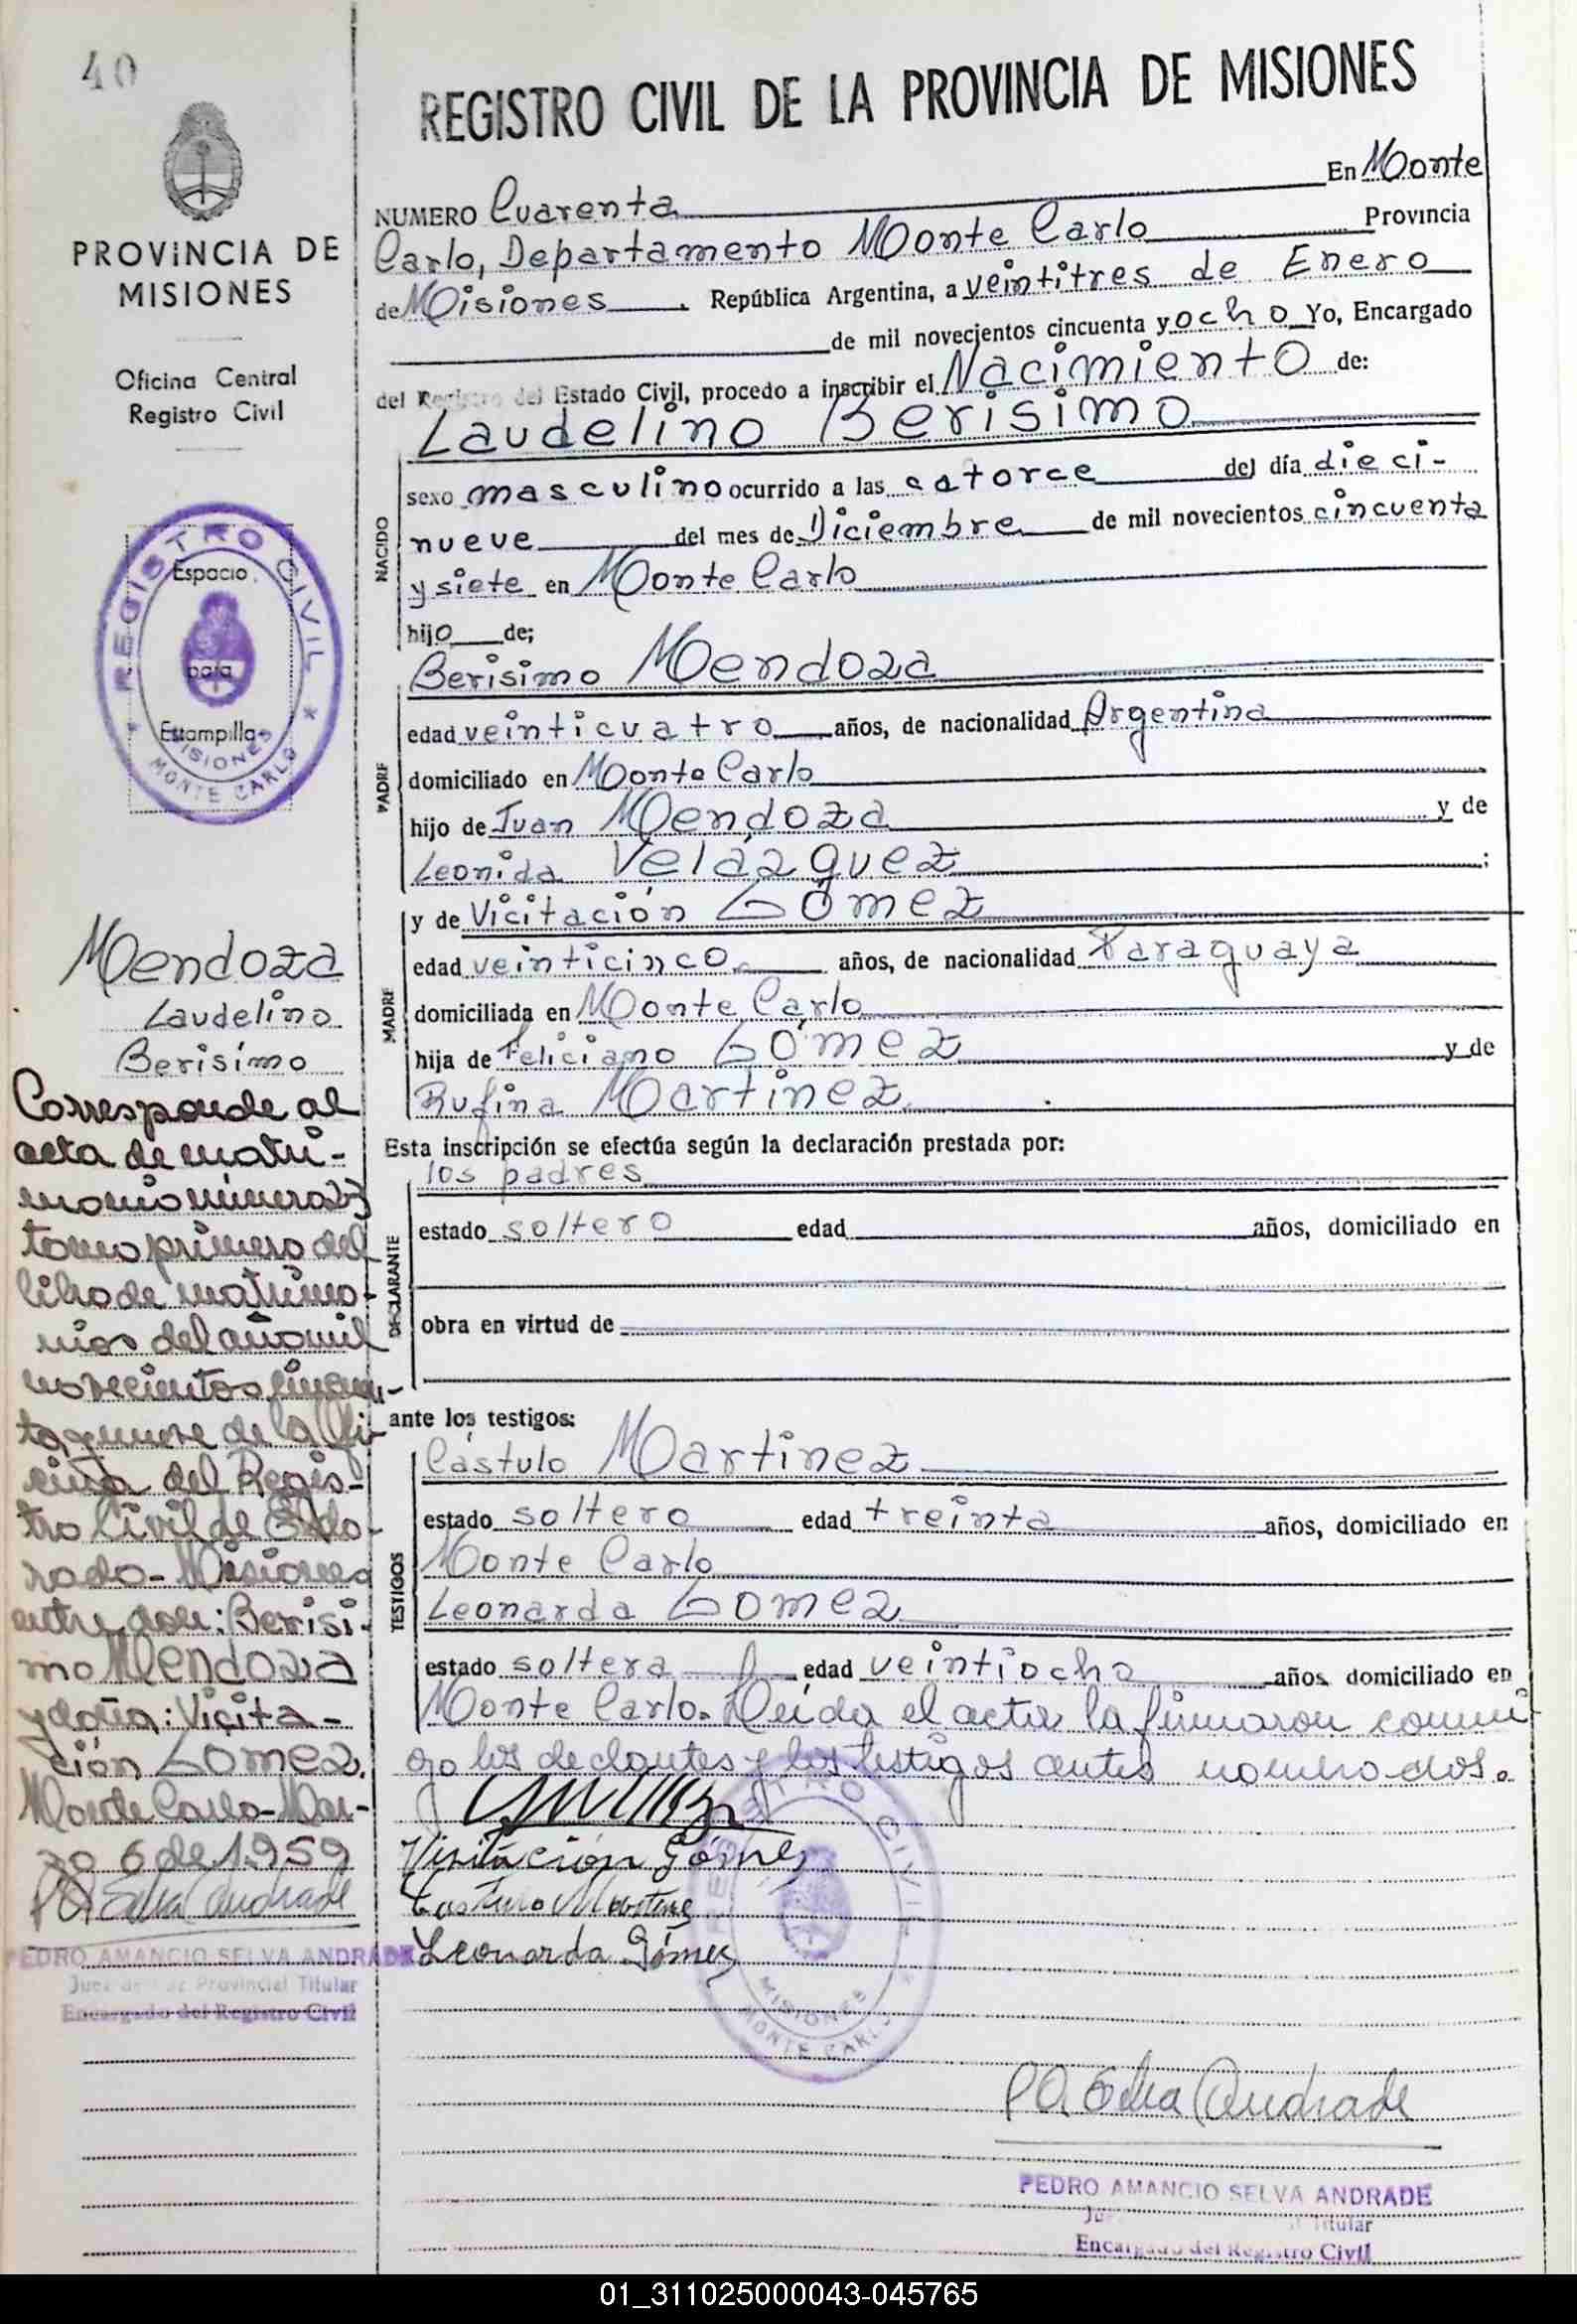 40
PROVINCIA DE
MISIONES
Oficina Central
Registro Civil
REGISTRO CIVIL
Espacio
para
Estampilla
MISIONES
MONTE CARLO
Mendoza
Laudelino
Berisímo
Corresponde al
acta de matri-
monio número 23
tomo primero del
libro de matrimo-
nios del año mil
novecientos cincuen-
ta y nueve de la Ofi-
cina del Regis-
tro Civil de Eldo-
rado - Misiones
entre don: Berisi-
mo Mendoza
y doña: Vicita-
ción Gomez.
Monte Carlo - Mar-
zo 6 de 1959
PA Selva Andrade
PEDRO AMANCIO SELVA ANDRADE
Juez de Paz Provincial Titular
Encargado del Registro Civil
REGISTRO CIVIL DE LA PROVINCIA DE MISIONES
NUMERO Cuarenta En Monte
Carlo, Departamento Monte Carlo Provincia
de Misiones . República Argentina, a veintitres de Enero
de mil novecientos cincuenta y ocho Yo, Encargado
del Registro del Estado Civil, procedo a inscribir el Nacimiento de:
Laudelino Berisimo
NACIDO
sexo masculino ocurrido a las catorce del día dieci-
nueve del mes de Diciembre de mil novecientos cincuenta
y siete en Monte Carlo
hijo de;
PADRE
Berisimo Mendoza
edad veinticuatro años, de nacionalidad Argentina
domiciliado en Monte Carlo
hijo de Juan Mendoza y de
Leonida Velázquez ;
MADRE
y de Vicitación Gómez
edad veinticinco años, de nacionalidad Paraguaya
domiciliada en Monte Carlo
hija de Feliciano Gómez y de
Rufina Martinez
Esta inscripción se efectúa según la declaración prestada por:
DECLARANTE
los padres
estado soltero edad años, domiciliado en
obra en virtud de
ante los testigos:
TESTIGOS
Cástulo Martinez
estado soltero edad treinta años, domiciliado en
Monte Carlo
Leonarda Gomez
estado soltera edad veintiocho años domiciliado en
Monte Carlo. Leída el acta la firmaron conmi
go los declantes y los testigos antes nombrados.
Visitación Gómez
Castulo Martinez
Leonarda Gómez
REGISTRO CIVIL
MISIONES
MONTE CARLO
PA Selva Andrade
PEDRO AMANCIO SELVA ANDRADE
Titular
Encargado del Registro Civil
01_311025000043-045765